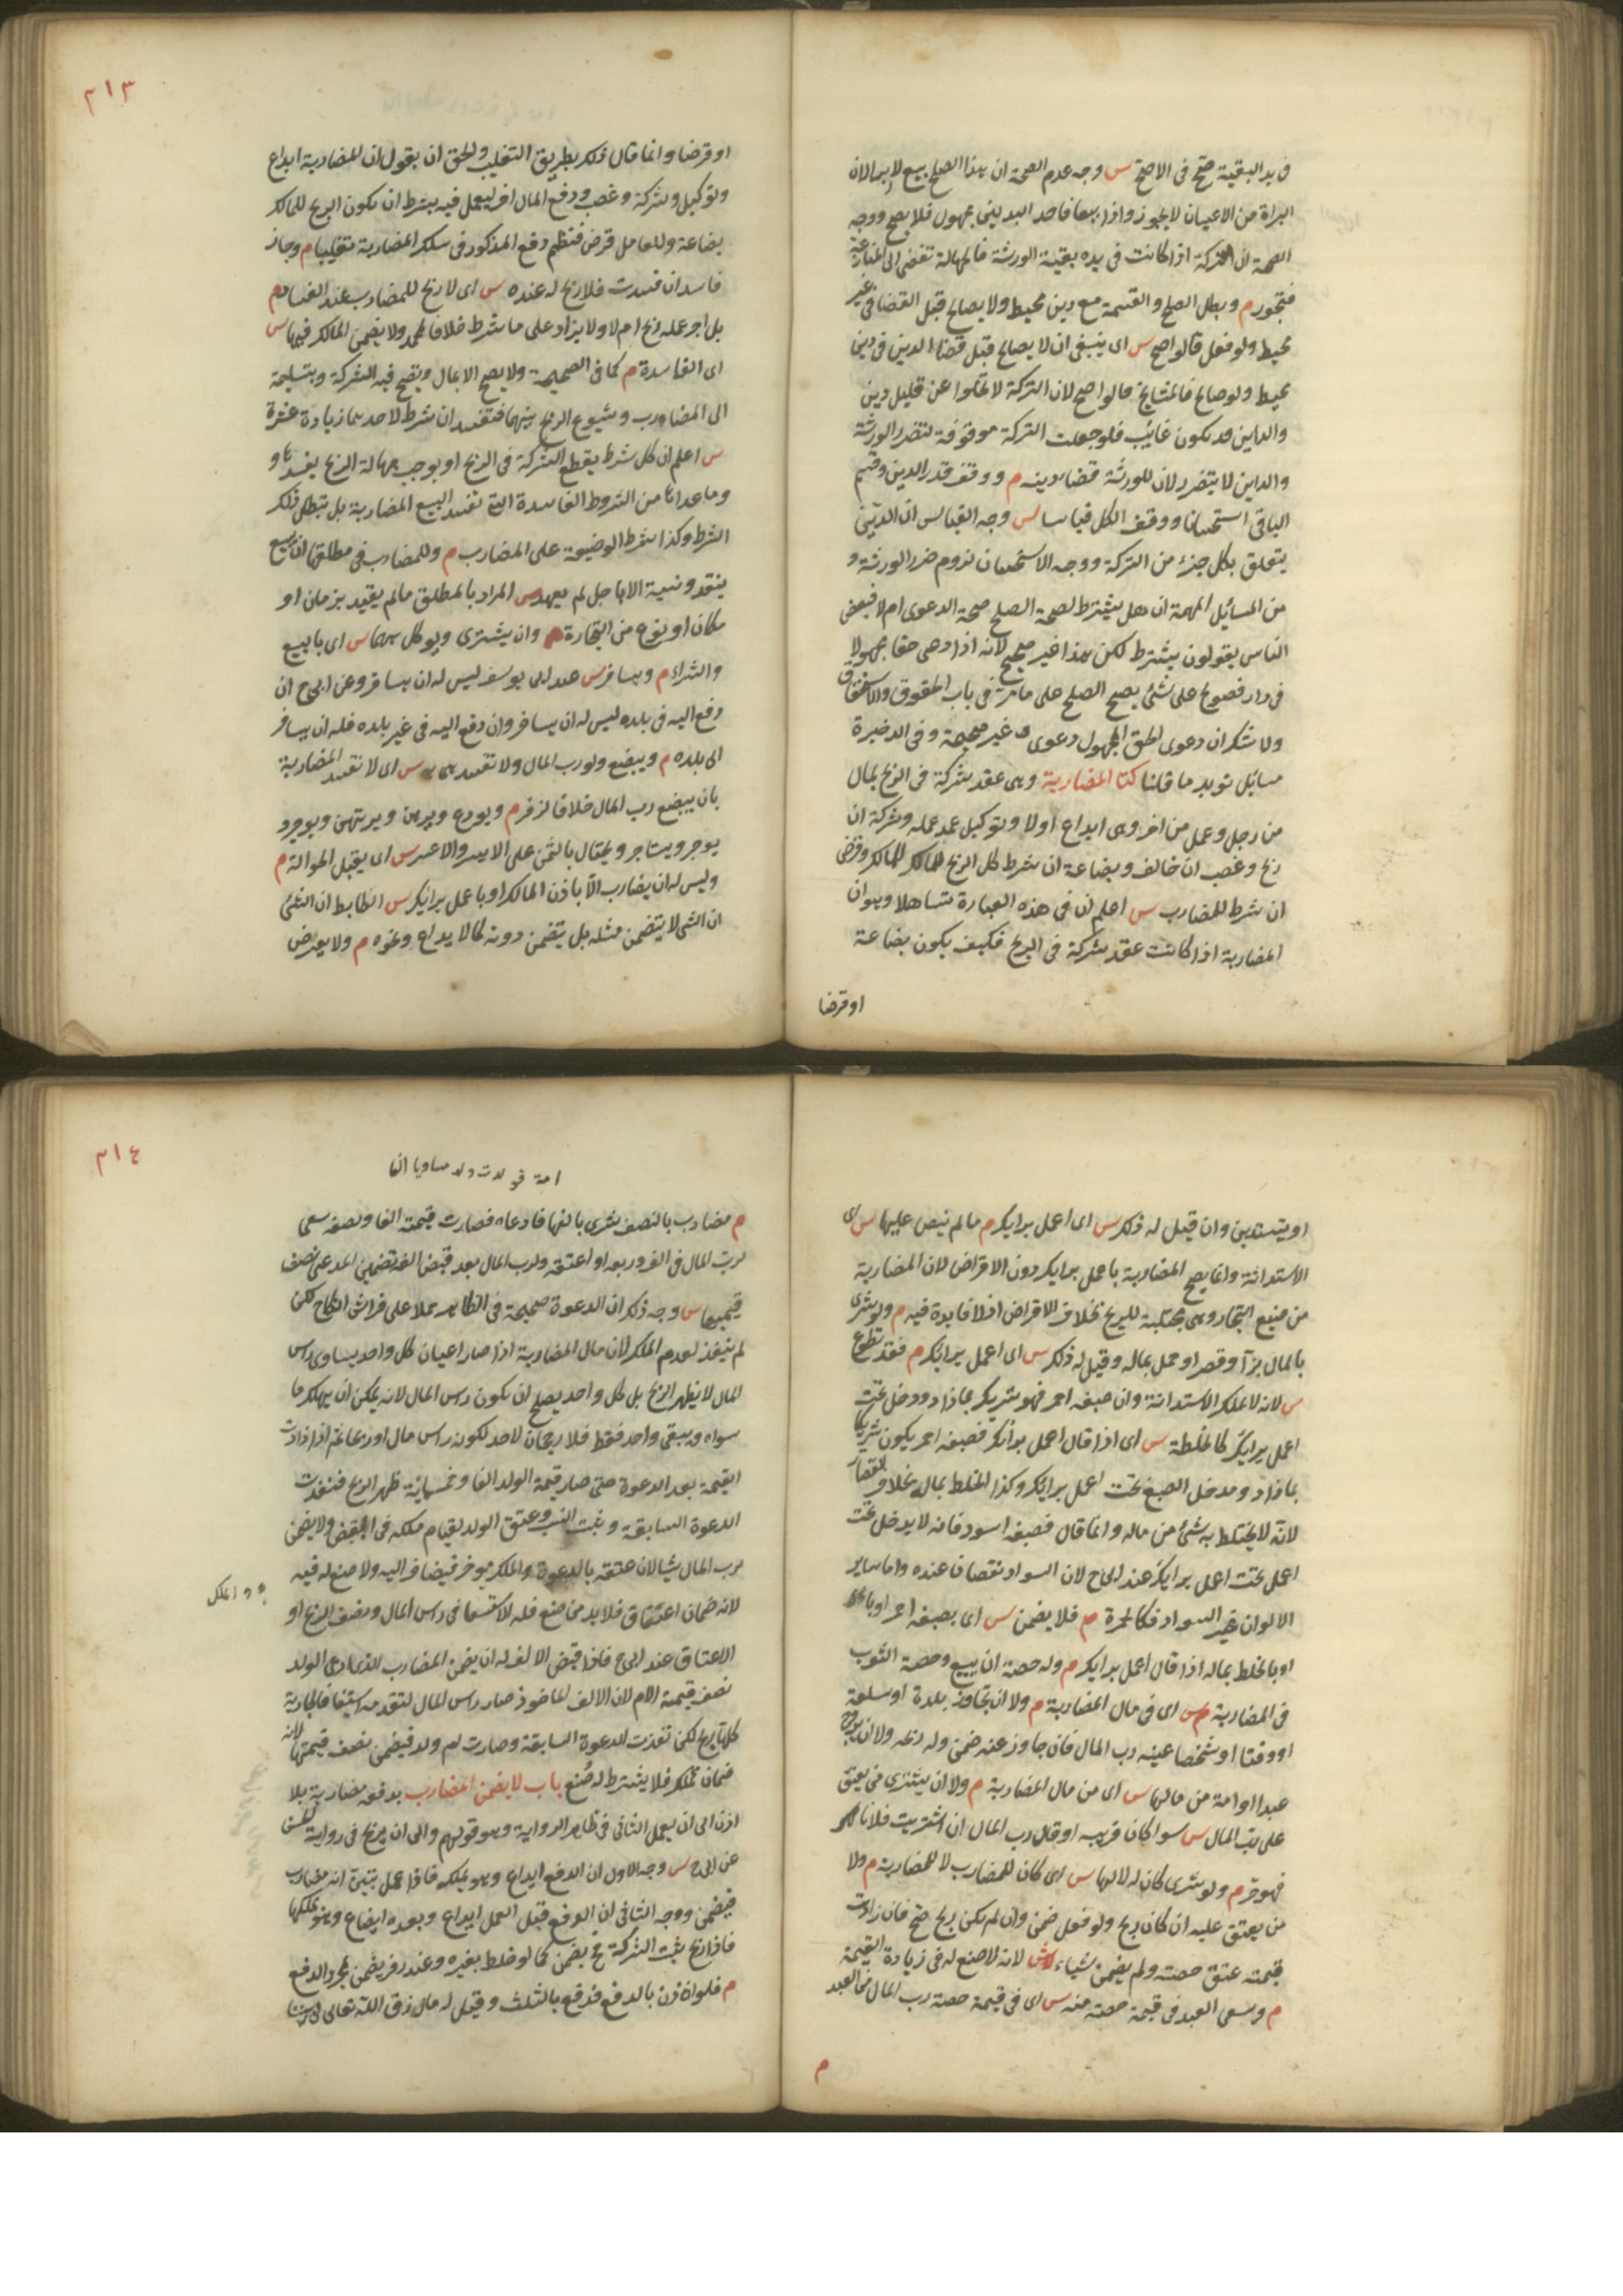 فى يد البقية صح فى الاصح س وجه عدم الصحة ان هذا الصلح بيع لا ابرا لان
البراة من الاعيان لا يجوز واذا بيعا فاحد البدلين مجهول فلا يصح ووجه
الصحة ان التركة اذا كانت فى يده بقية الورثة فالجهالة تفضى الى المنازعة
فيجوز م وبطل الصلح والقسمة مع دين محيط ولا يصالح قبل القضا فى غير
محيط ولو فعل قالوا صح س اى ينبغى ان لا يصالح قبل قضا الدين فى دين
محيط ولو صالح فالمشايخ قالوا صح لان التركة لا تخلوا عن قليل دين
والداين قد يكون غائب فلو جعلت التركة موقوفة لتضرر الورثة
والداين لا يتضرر لان للورثة قضا دينه م ووقف قدر الدين وقسم
الباقى استحسانا ووقف الكل قياسا س وجه القياس ان الدين
يتعلق بكل جزء من التركة ووجه الاستحسان لزوم ضرر الورثة و
من المسائل المهمة ان هل يشترط لصحة الصلح صحة الدعوى ام لا فبعض
الناس يقولون يشترط لكن هذا غير صحيح لانه اذا ادعى حقا مجهولا
فى دار فصولح على شئ يصح الصلح على ما مر فى باب الحقوق والاستحقاق
ولا شك ان دعوى الحق المجهول دعوى غير صحيحة وفى الذخيرة
مسائل تويد ما قلنا كتا المضاربة وهى عقد شركة فى الربح بمال
من رجل وعمل من اخر وهى ايداع اولا وتوكيل عند عمله وشركة ان
ربح وغصب ان خالف وبضاعة ان شرط كل الربح للمالك وقرض
ان شرط للمضارب س اعلم ان فى هذه العبارة تساهلا وهو ان
المضاربة اذا كانت عقد شركة فى الربح فكيف يكون بضاعة
او قرضا
٢١٣
او قرضا وانما قال ذلك بطريق التغليب والحق ان يقول ان المضاربة ايداع
وتوكيل وشركة وغصب ودفع المال اخر ليعمل فيه بشرط ان يكون الربح للمالك
بضاعة وللعامل قرض فنظم دفع المذكور فى سلك المضاربة تغليبا م وجاز
فاسد ان فسدت فلا ربح له عنده س اى لا ربح للمضارب عند الفساد م
بل اجر عمله ربح ام لا ولا يزاد على ما شرط خلافا لمحمد ولا يضمن المالك فيها س
اى الفاسدة م كما فى الصحيحة ولا يصح الا بمال وتصح فيه الشركة وبتسليمه
الى المضارب وشيوع الربح بينهما فتفسد ان شرط لاحدهما زيادة عشرة
س اعلم ان كل شرط يقطع الشركة فى الربح او يوجب جهالة الربح يفسدها و
وما عداها من الشروط الفاسدة التى تفسد البيع المضاربة بل تبطل ذلك
الشرط وكذا شرط الوضيعة على المضارب م وللمضارب فى مطلقها ان يبيع
بنقد ونسية الا باجل لم يعهد س المراد بالمطلق ما لم يقيد بزمان او
مكان او نوع من التجارة م وان يشترى ويوكل بهما س اى بالبيع
والشراء م ويسافر س عند ابى يوسف ليس له ان يسافر وعن ابى ح ان
دفع اليه فى بلده ليس له ان يسافر وان دفع اليه فى غير بلده فله ان يسافر
الى بلده م ويبضع ولو رب المال ولا تفسد هى به س اى لا تفسد المضاربة
بان يبضع رب المال خلافا لزفر م ويودع ويرهن ويرتهن ويوجر د
يوجر ويستاجر ويحتال بالثمن على الايسر والاعسر س اى يقبل الحوالة م
وليس له ان يضارب الا باذن المالك او باعمل برايك س الظابط ان الشئ
ان الشى لا يتضمن مثله بل يتضمن دونه كالايداع ونحوه م ولا يقرض
او يستدين وان قيل له ذلك س اى اعمل برايك م ما لم ينص عليها س اى
الاستدانة وانما يصح المضاربة باعمل برايك دون الاقراض لان المضاربة
من صنيع التجار وهى مجتلبة للربح بخلاف الاقراض اذ لا فايدة فيه م ولو شرى
بالمال بزا وقصر او حمل بماله وقيل له ذلك س اى اعمل برايك م فقد تطوع
س لانه لا يملك الاستدانة وان صبغه احمر فهو شريك بما زاد ودخل تحت
اعمل برايك كالخلطة س اى اذا قال اعمل برايك فصبغه احمر يكون شريكا
بما زاد ومدخل الصبغ تحت اعمل برايك وكذا الخلط بماله بخلاف القصار
لانه لا يختلط به شئ من ماله وانما قال فصبغه اسود فانه لا يدخل تحت
اعمل تحت اعمل برايك عند ابى ح لان السواد نقصان عنده واما ساير
الالوان غير السواد فكالحمرة م فلا يضمن س اى بصبغه احمر او بالخ
او بالخلط بماله اذا قال اعمل برايك م وله حصة ان يبيع وحصة الثوب
فى المضاربة س اى فى مال المضاربة م ولا ان تجاوز بلدة او سلعة
او وقتا او شخصا عينه رب المال فان جاوز عنه ضمن وله ربحه ولا ان يزوج
عبدا او امة من مالها س اى من مال المضاربة م ولا ان يشترى من يعتق
على رب المال س سوا كان قريبه او قال رب المال ان اشتريت فلانا
فهو حر م ولو شرى كان له لا لها س اى كان للمضارب لا للمضاربة م ولا
من يعتق عليه ان كان ربح ولو فعل ضمن وان لم يكن ربح صح فان زادت
قيمته عتق حصته ولم يضمن شياء س لانه لا صنع له فى زيادة القيمة
م وسعى العبد فى قيمة حصته منه س اى فى قيمة حصة رب المال من العبد
م
٢١٤
امة فولدت ولد مساويا الفا
م مضارب بالنصف شرى بالفها فادعاه فصارت قيمته الفا ونصفه سعى
لرب المال فى الف وربعه او اعتقه ولرب المال بعد قبض الفه تضمين المدعى نصف
قيمتها س وجه ذلك ان الدعوة صحيحة فى الظاهر حملا على فراش النكاح لكن
لم ينفذ لعدم الملك لان مال المضاربة اذا صار اعيان كل واحد يساوى راس
المال لا يظهر الربح بل كل واحد يصلح ان يكون راس المال لانه يمكن ان يهلك ما
سواه ويبقى واحد فقط فلا رجحان لاحد لكونه راس مال او ربحا ثم اذا زادت
القيمة بعد الدعوة حتى صار قيمة الولد الفا وخمسماية ظهر الربح فنفذت
الدعوة السابقة ويثبت النسب وعتق الولد لقيام ملكه فى البعض ولا يضمن
لرب المال شيا لان عتقه بالدعوة والملك موخر فيضاف اليه ولا صنع له فيه
لانه ضمان اعتاق فلا بد من صنع فله الاستسعا فى راس المال ونصف الربح او
الاعتاق عند ابى ح فاذا قبض الالف له ان يضمن المضارب الذى ادعى الولد
نصف قيمة الام لان الالف الماخوذ صار راس المال لتقدمه استيفا فالجارية
كلها ربح لكن نفذت الدعوة السابقة وصارت ام ولد فيضمن نصف قيمتها لانه
ضمان تملك فلا يشترط له صنع باب لا يضمن المضارب بدفعه مضاربة بلا
اذن الى ان يعمل الثانى فى ظاهر الرواية وهو قولهم والى ان يربح فى رواية الحسن
عن ابى ح س وجه الاول ان الدفع ايداع وهو يملكه فاذا عمل تبين انه مضارب
فيضمن ووجه الثانى ان الدفع قبل العمل ايداع وبعده ابضاع وهو يملكها
فاذا ربح يثبت الشركة ح يضمن كما لو خلط بغيره وعند زفر يضمن بمجرد الدفع
م فلو اذن بالدفع فدفع بالثلث وقيل له ما رزق الله تعالى